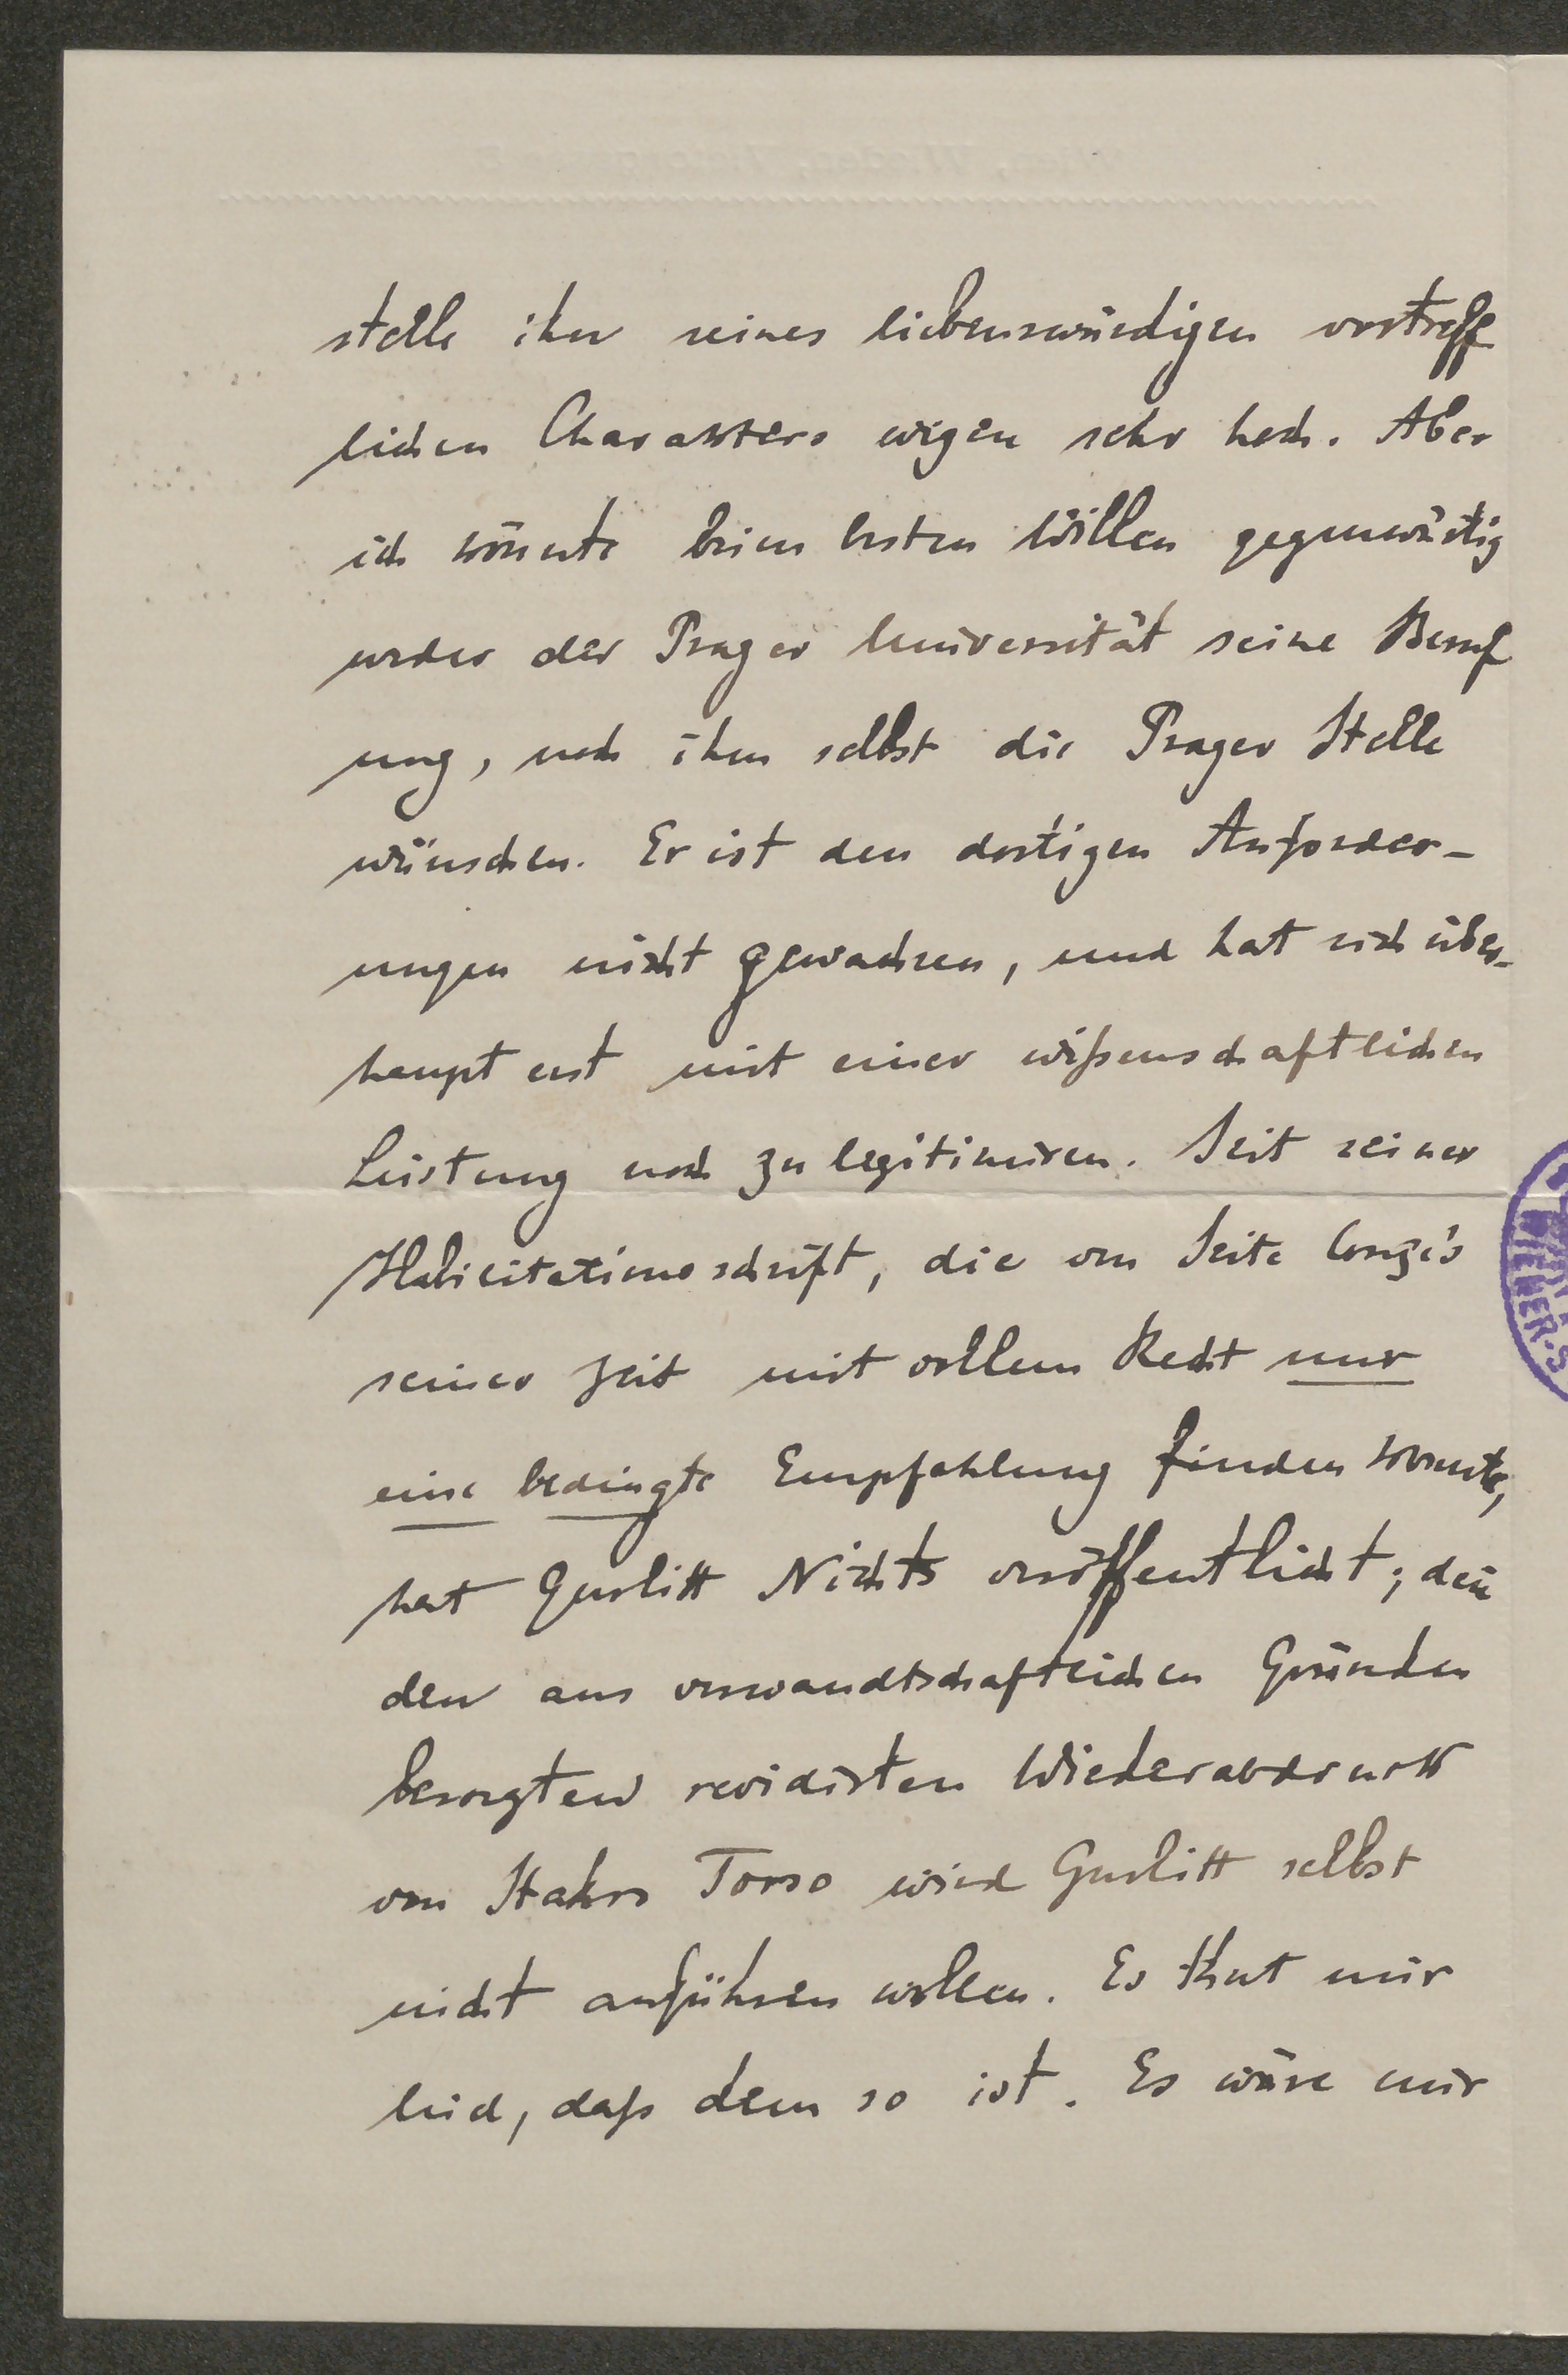 stelle ihn seines liebenswürdigen vortreff
lichen Charakters wegen sehr hoch. Aber
ich könnte beim besten Willen gegenwärtig
weder der Prager Universität seine Beruf
ung, noch ihm selbst die Prager Stelle
wünschen. Er ist den dortigen Anforder-
ungen nicht gewachsen, und hat sich über-
haupt erst mit einer wißenschaftlichen
Leistung noch zu legitimiren. Seit seiner
Habilitationsschrift, die von Seite Conze's
seiner Zeit mit vollem Recht nur
eine bedingte Empfehlung finden konnte,
hat Gurlitt Nichts veröffentlicht; deñ
den aus verwandtschaftlichen Gründen
besorgten revidirten Wiederabdruck
von Stahrs Torso wird Gurlitt selbst
nicht anführen wollen. Es thut mir
leid, daß dem so ist. Es wäre mir